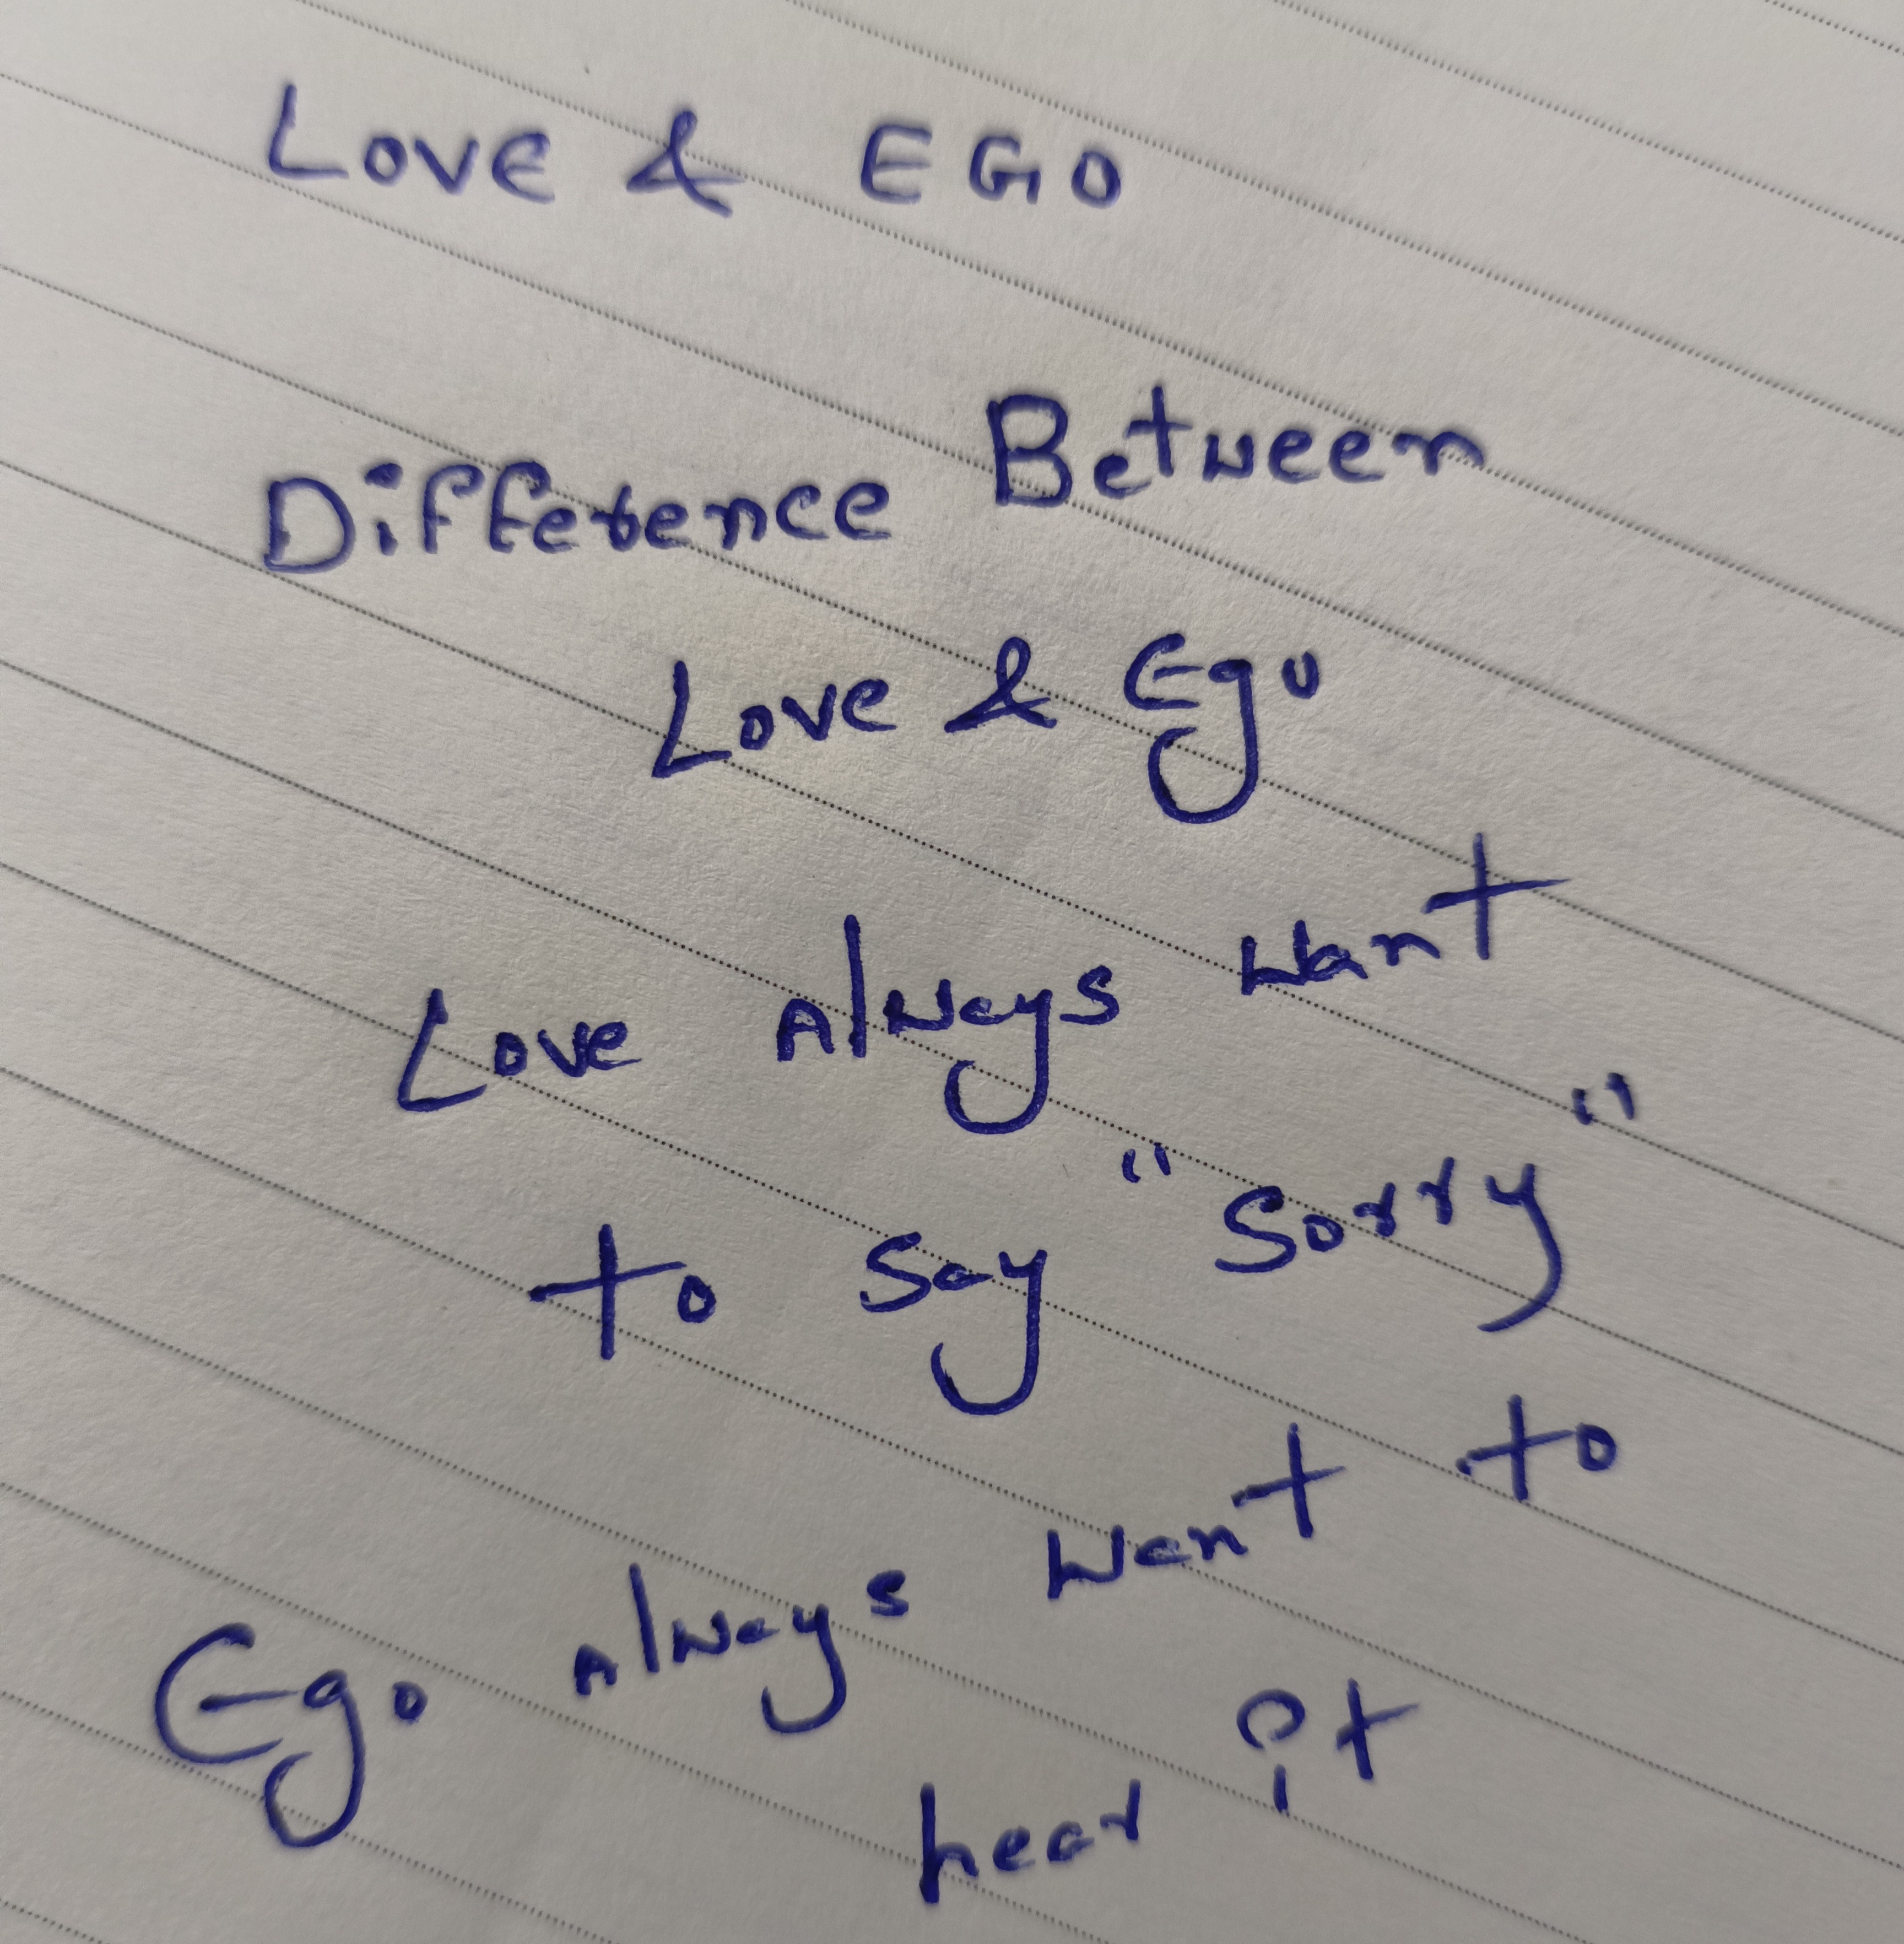 LOVE & EGO
Difference Between
Love & Ego
Love Always Want
to Say "Sorry"
Ego Always Want to
hear it